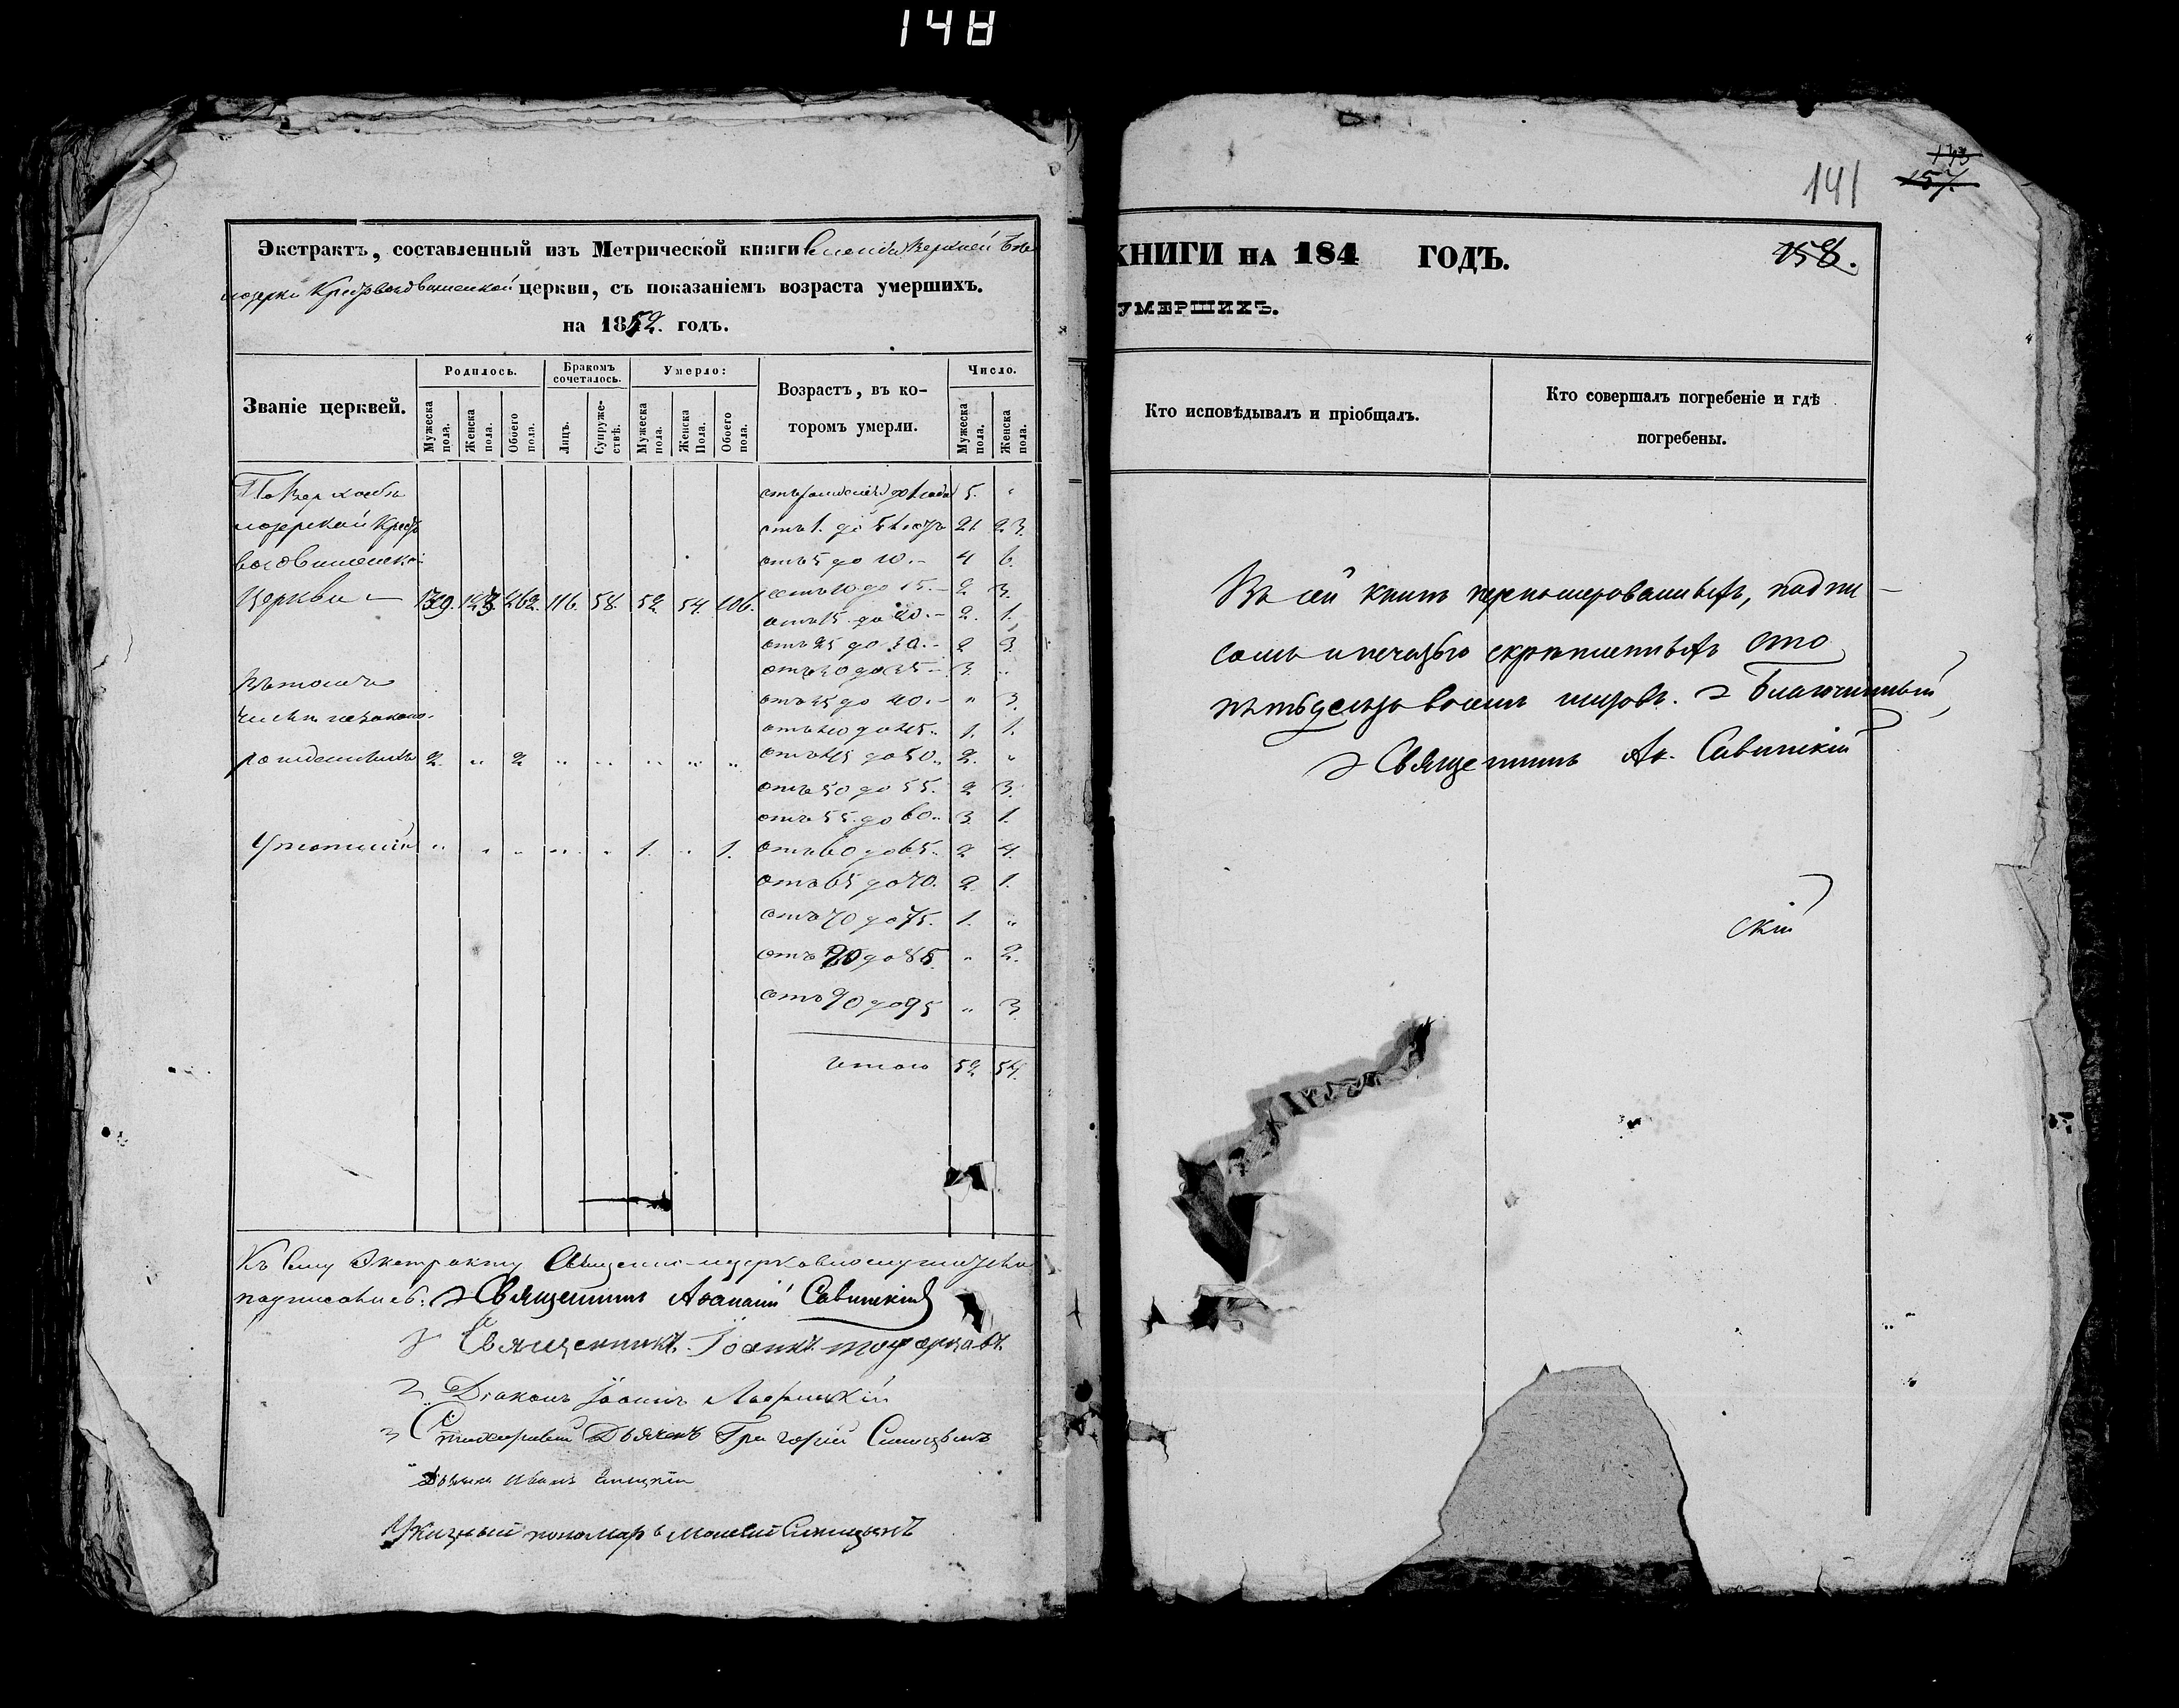 148
Экстрактъ, составленный изъ Метрической книги слободы Верхней Бѣ
лозерки Крестовоздвиженской церкви, съ показаніемъ возраста умершихъ.
на 1852. годъ.
Званіе церквей.
Родилось.
Бракомъ сочеталось.
Умерло:
Возрастъ, въ ко-
торомъ умерли.
Число.
Мужеска пола.
Женска пола.
Обоего пола.
Лицъ.
Супруже-ствъ.
Мужеска пола.
Женска Пола.
Обоего пола.
Мужеска пола.
Женска пола.
По Верхнебѣ
лозерской Кресто
воздвиженской
Церкви — 139. 123. 262. 116. 58. 52. 54. 106.
Въ томъ
числѣ незаконо-
рожденныхъ 2. „ 2 „ „ „ „ „
„ „ „ „ „ 1. „ 1.
отъ рожденія до 1 года 5. „
отъ 1. до 5 лѣтъ 21 23.
отъ 5 до 10.- 4 6.
отъ 10 до 15.- 2 3.
отъ 15 до 20.- 2. 1.
отъ 25 до 30.- 2 3.
отъ 30 до 35- 3. „
отъ 35 до 40.- „ 3.
отъ 40 до 45„ 1. 1.
отъ 45 до 50„ 2. „
отъ 50 до 55. 2 3.
отъ 55. до 60„ 3. 1.
отъ 60 до 65„ 2 4.
отъ 65 до 70. 2. 1.
отъ 70 до 75. 1. „
до 85. „ 2.
отъ 90 до 95 „ 3.
итого 52 54.
Къ сему Экстракту Священно-церковнослужители
подписались: Священникъ Аѳанасій Савинскій
Священникъ Іоаннъ
Діаконъ Іоаннъ
Стихарный Дьячекъ Григорій Синицынъ
Иванъ
пономарь Моисей Синицынъ
КНИГИ НА 184 ГОДЪ.
УМЕРШИХЪ.
141
143
157.
158.
Кто исповѣдывалъ и пріобщалъ.
Кто совершалъ погребеніе и гдѣ
погребены.
Въ сей книгѣ перномерованныхъ, подпи-
сомъ и печатью скрѣпленныхъ сто
пятьдесятъ восемь листовъ. Благочинный,
Священникъ Аѳ. Савинскій
скій